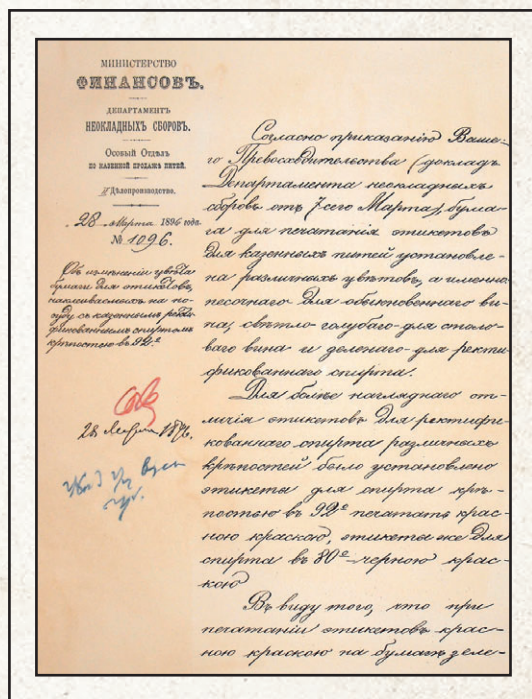 МИНИСТЕРСТВО
ФИНАНСОВЪ.
ДЕПАРТАМЕНТЪ
НЕОКЛАДНЫХЪ СБОРОВЪ.
Особый Отдѣлъ
ПО КАЗЕННОЙ ПРОДАЖѢ ПИТЕЙ.
Дѣлопроизводство.
28 Марта 1896 года.
№ 1096.
Объ измѣненіи цвѣта
бумаги для этикетовъ,
наклеиваемыхъ на по-
суду съ казеннымъ ректи-
фикованнымъ спиртомъ
крѣпостью въ 92°
28 Марта 1896.
Согласно приказанію Ваше-
го Превосходительства (докладъ
Департамента неокладныхъ
сборовъ отъ 7 сего Марта), бума-
га для печатанія этикетовъ
для казенныхъ питей установле-
на различныхъ цвѣтовъ, а именно
песочнаго для обыкновеннаго ви-
на, свѣтло-голубаго-для столо-
ваго вина и зеленаго-для ректи-
фикованнаго спирта.
Для болѣе нагляднаго от-
личія этикетовъ для ректифи-
кованнаго спирта различныхъ
крѣпостей было установлено
этикеты для спирта крѣ-
постью въ 92° печатать крас-
ною краскою, этикеты же для
спирта въ 80°-черною крас-
кою
Въ виду того, что при
печатаніи этикетовъ крас-
ною краскою на бумагѣ зеле-